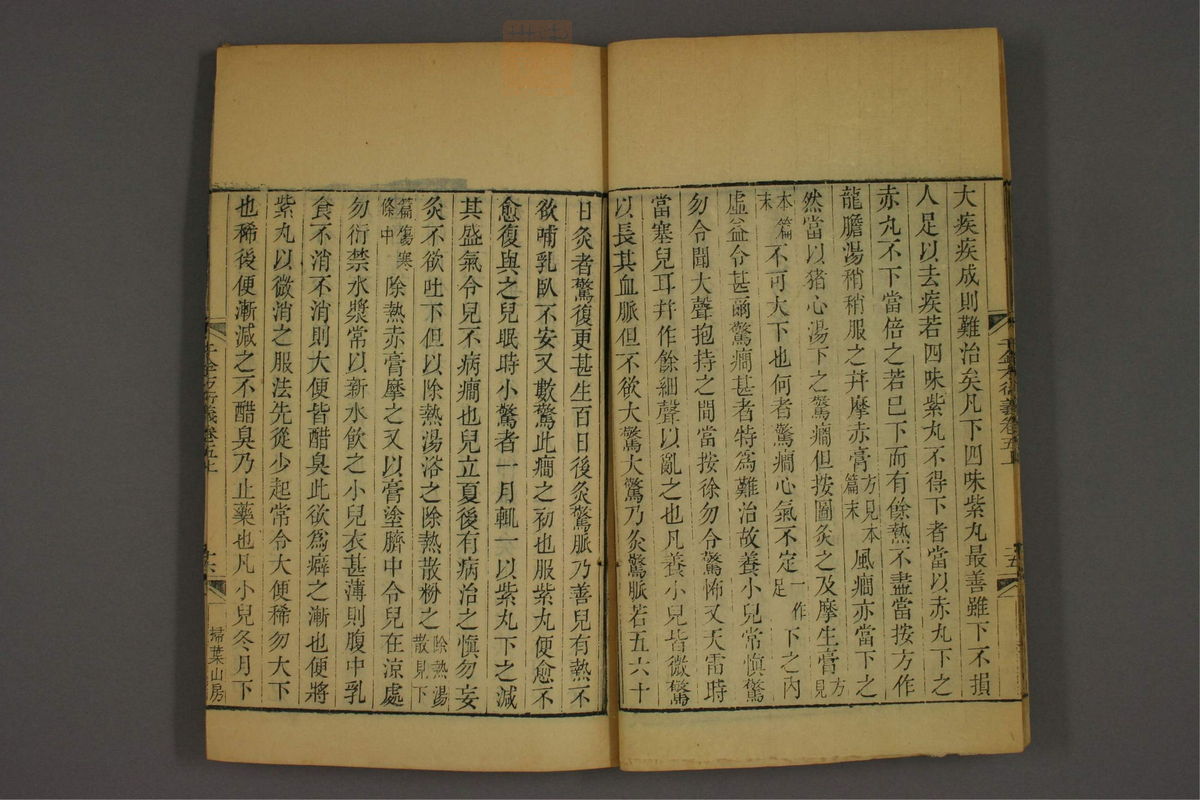 大疾疾成則難治矣凡下四味紫丸最善雖下不損
人足以去疾若四味紫丸不得下者當以赤丸下之
赤丸不下當倍之若已下而有餘熱不盡當按方作
龍膽湯稍稍服之幷摩赤膏方見本篇末風癇亦當下之
然當以猪心湯下之驚癇但按圖灸之及摩生膏方見
本篇末不可大下也何者驚癇心氣不定一作足下之內
虛益令甚爾驚癇甚者特爲難治故養小兒常愼驚
勿令聞大聲抱持之間當按徐勿令驚怖又天雷時
當塞兒耳幷作餘細聲以亂之也凡養小兒皆微驚
以長其血脈但不欲大驚大驚乃灸驚脈若五六十
日灸者驚復更甚生百日後灸驚脈乃善兒有熱不
欲哺乳臥不安又數驚此癇之初也服紫丸便愈不
愈復與之兒眠時小驚者一月輒一以紫丸下之減
其盛氣令兒不病癇也兒立夏後有病治之愼勿妄
灸不欲吐下但以除熱湯浴之除熱散粉之除熱湯散見下
篇傷寒條中除熱赤膏摩之又以膏塗臍中令兒在涼處
勿衍禁水漿常以新水飮之小兒衣甚薄則腹中乳
食不消不消則大便皆醋臭此欲爲癖之漸也便將
紫丸以微消之服法先從少起常令大便稀勿大下
也稀後便漸減之不醋臭乃止藥也凡小兒冬月下
千金方衍義卷五上
十六
掃葉山房